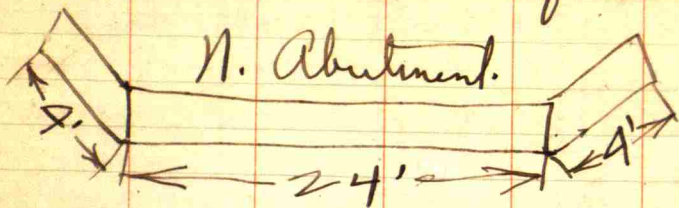 N. Abutment.
4'
4'
24'